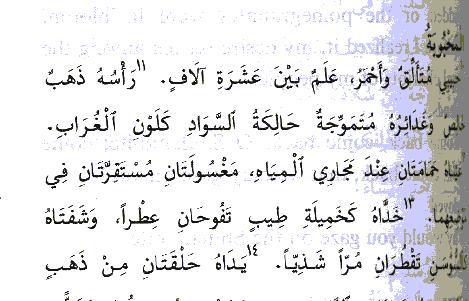 المحبوبة
حبيبي مُتَأَلِّقٌ وَأَحْمَرُ، عَلَمٌ بَيْنَ عَشَرَةِ آلَافٍ. ١١رَأْسُهُ ذَهَبٌ
خالص وَغَدَائِرُهُ مُتَمَوِّجَةٌ حَالِكَةُ ٱلسَّوَادِ كَلَوْنِ ٱلْغُرَابِ.
عيناه حَمَامَتَانِ عِنْدَ مَجَارِي ٱلْمِيَاهِ، مَغْسُولَتَانِ مُسْتَقِرَّتَانِ فِي
١٣خَدَّاهُ كَخَمِيلَةِ طِيبٍ تَفُوحَانِ عِطْراً، وَشَفَتَاهُ
كالسوسن تَقْطُرَانِ مُرّاً شَذِيّاً. ١٤يَدَاهُ حَلْقَتَانِ مِنْ ذَهَبٍ